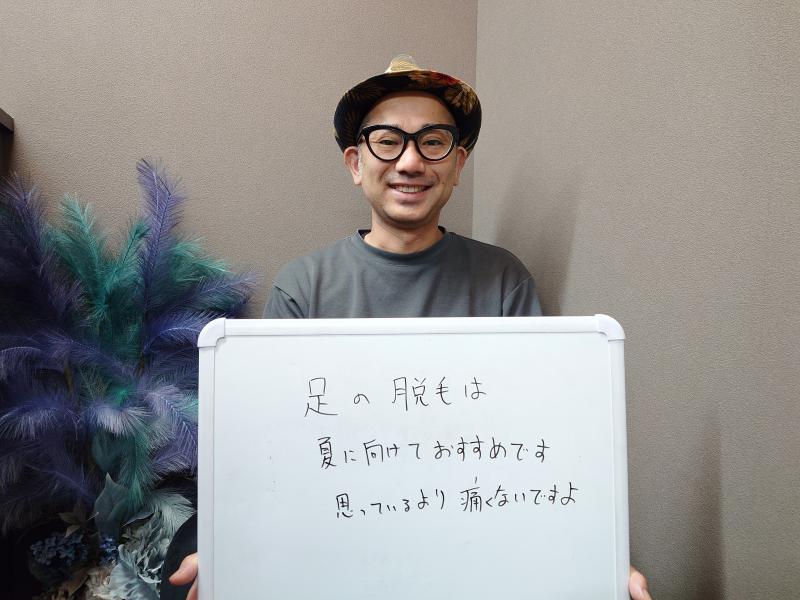 足の脱毛は
夏に向けておすすめです
思っているより痛くないですよ